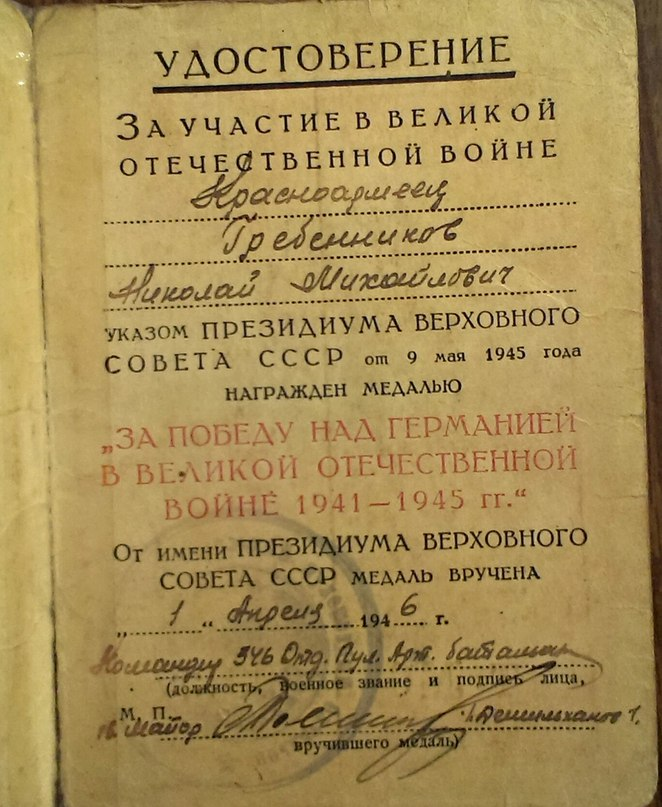 УДОСТОВЕРЕНИЕ
ЗА УЧАСТИЕ В ВЕЛИКОЙ
ОТЕЧЕСТВЕННОЙ ВОЙНЕ
Красноармеец
Гребенников
Николай Михайлович
УКАЗОМ ПРЕЗИДИУМА ВЕРХОВНОГО
СОВЕТА СССР от 9 мая 1945 года
НАГРАЖДЕН МЕДАЛЬЮ
„ЗА ПОБЕДУ НАД ГЕРМАНИЕЙ
В ВЕЛИКОЙ ОТЕЧЕСТВЕННОЙ
ВОЙНЕ 1941—1945 гг.“
ОТ ИМЕНИ ПРЕЗИДИУМА ВЕРХОВНОГО
СОВЕТА СССР МЕДАЛЬ ВРУЧЕНА
„1“ Апреля 1946 г.
Командир 346 Отд. Пул. Арт. батальон
(должность, военное звание и подпись лица,
М. П.
гв. Майор
вручившего медаль)